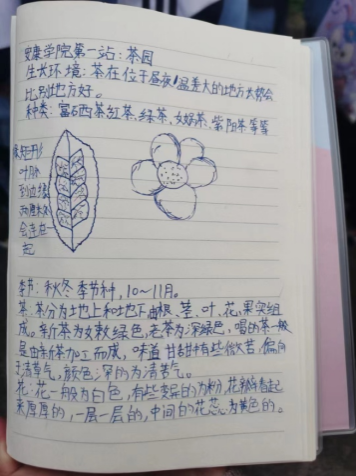 安康学院第一站：茶园
生长环境：茶在位于昼夜温差大的地方长势会
比别地方好。
种类：富石西茶红茶，绿茶，女娲茶，紫阳茶等等
叶脉
到边缘
会连在一
起
季节：秋冬季节种，10～11月。
茶：茶分为地上和地下由根、茎、叶、花、果实组
成。新茶为嫩绿色，老茶为深绿色，喝的茶一般
是由新茶加工而成，味道甘甜有些微苦，偏向
于清草气，颜色深的为清苦气。
花：花一般为白色，有些变异的为粉，花瓣看起
来厚厚的，一层一层的，中间的花芯为黄色的。